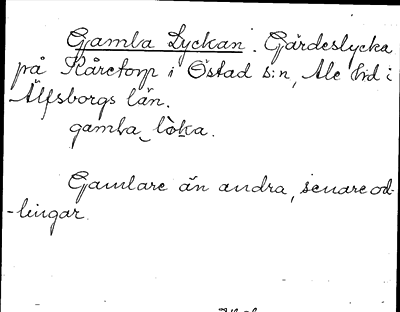 Gamla Lyckan. Gärdeslycka
på Kåretorp i Östad s:n, Ale hd i
Älfsborgs län.
gamla lòka.
Gamlare än andra, senare od-
-lingar.